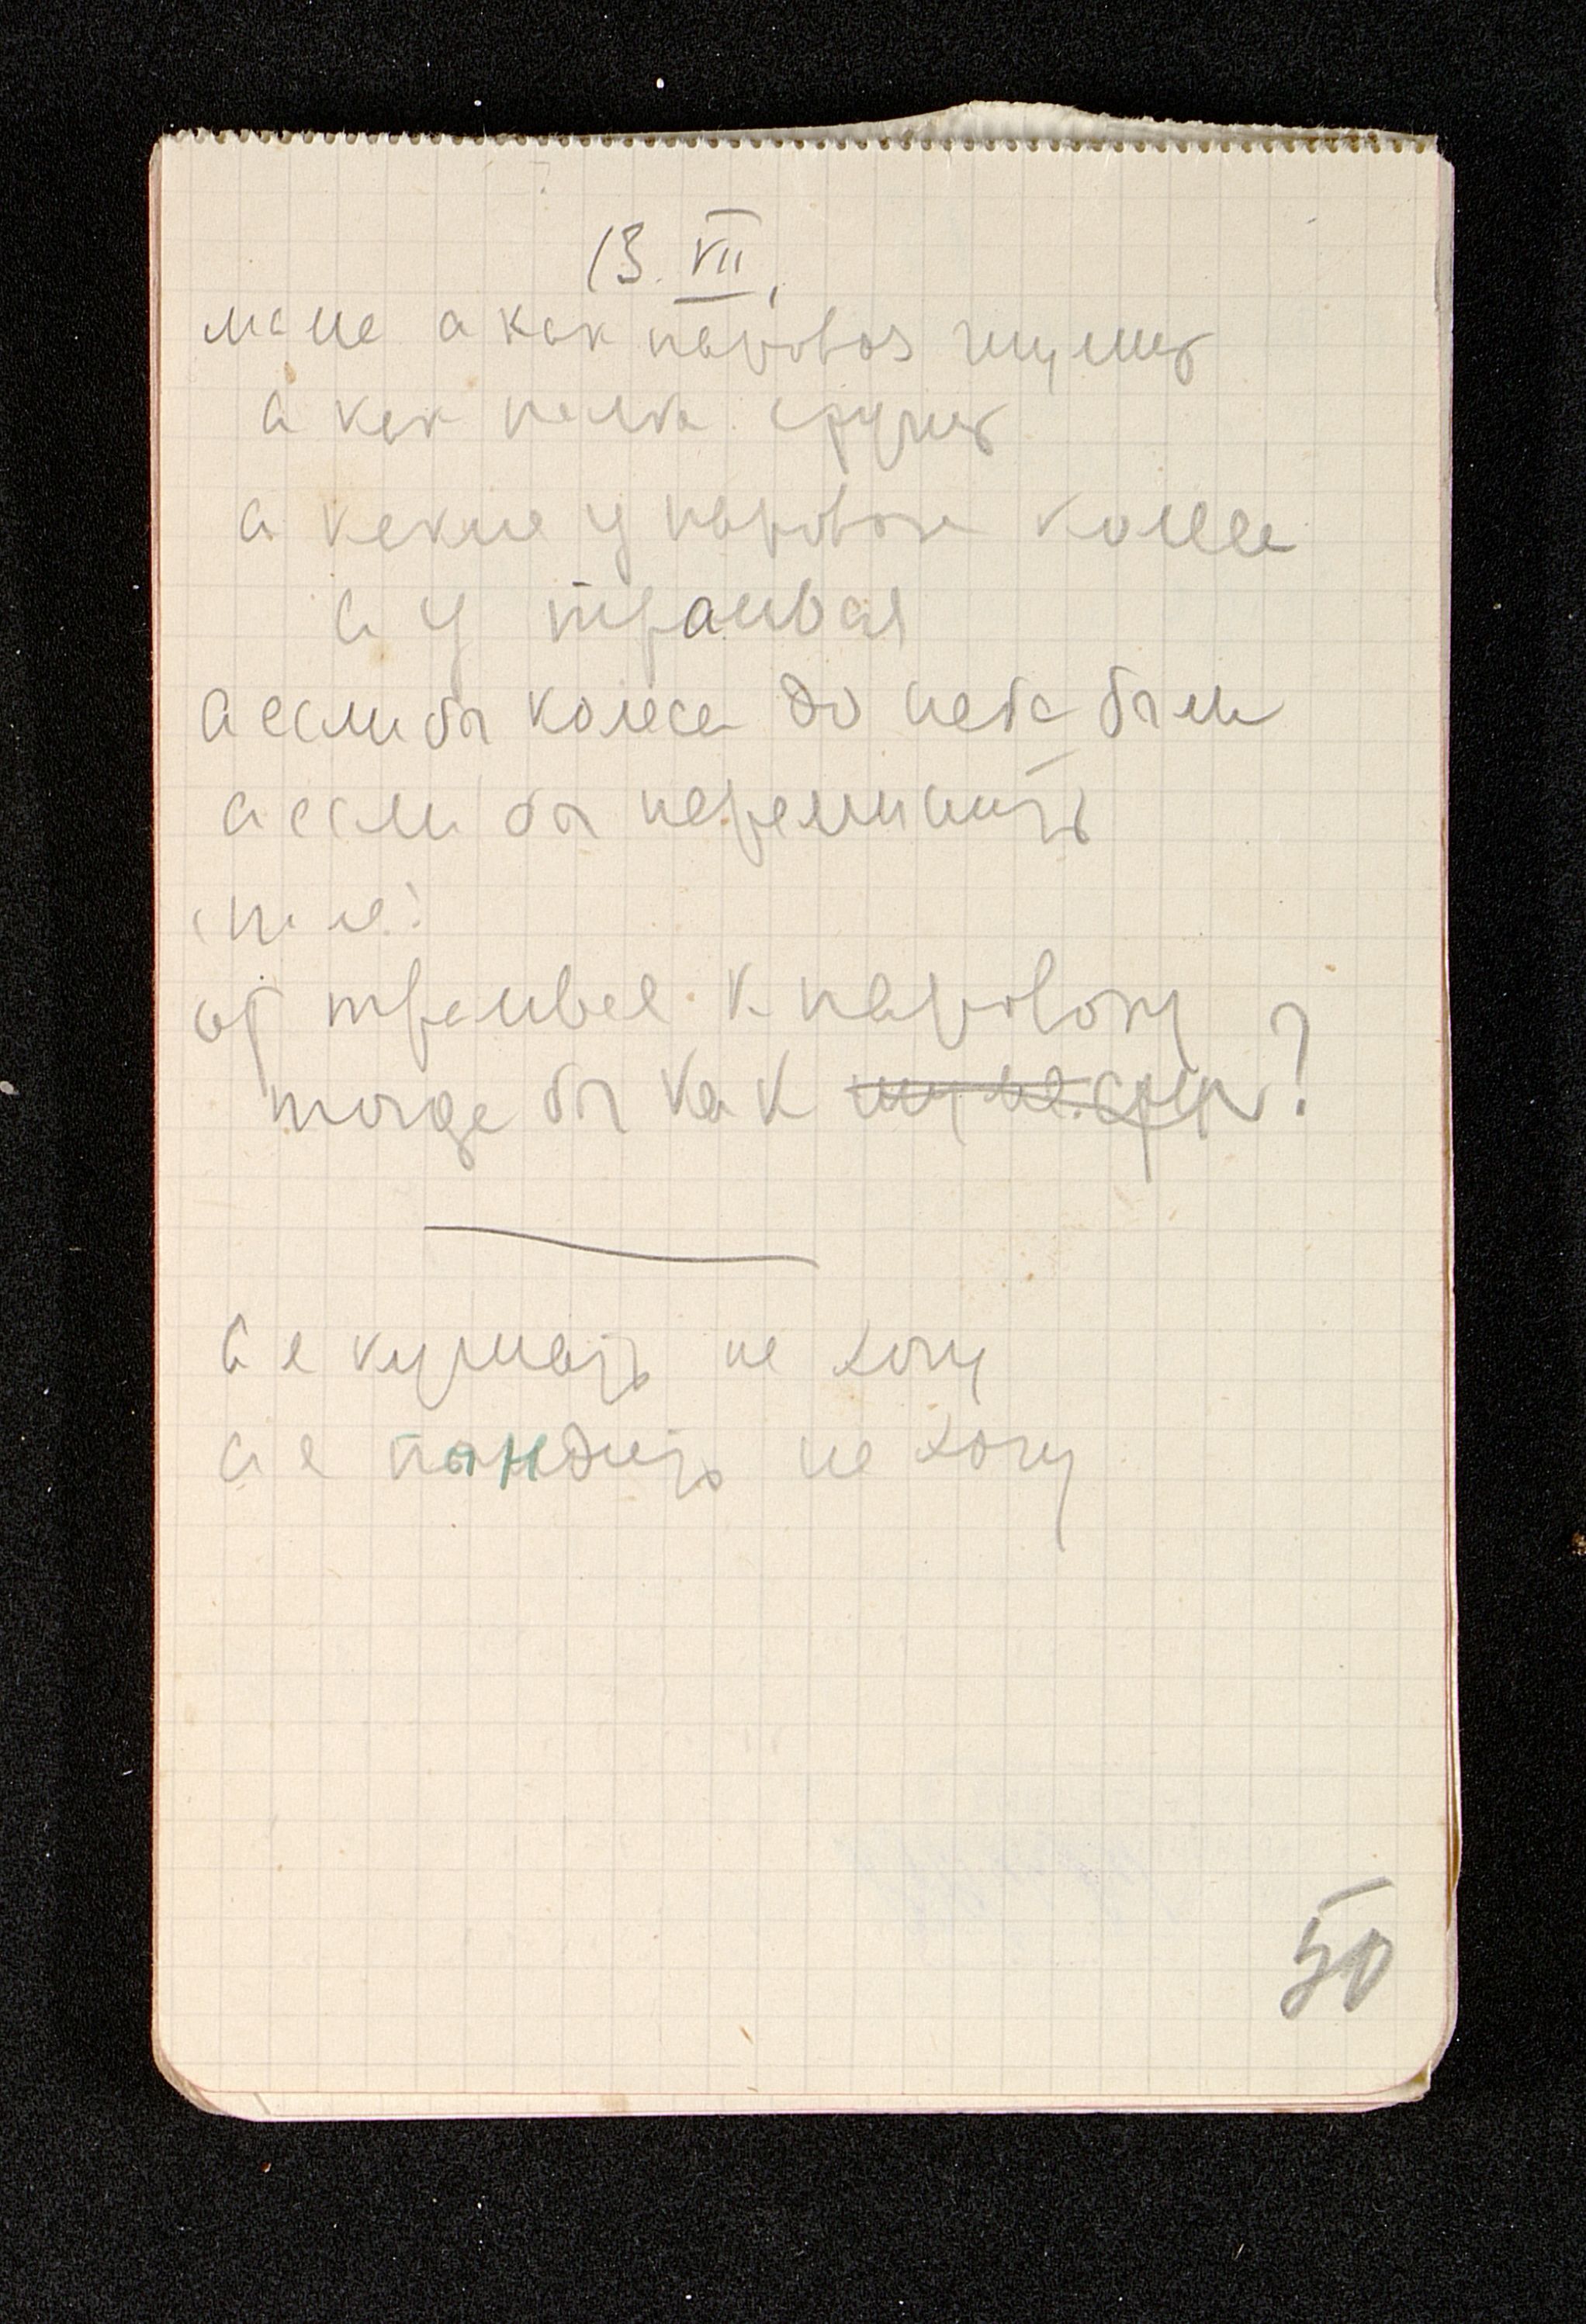 13. VII.
мама а как паровоз шумит
а как палка стучит
а какие у паровоза колеса
а у трамвая
а если бы колеса до неба были
а если бы переменить
от трамвая к паровозу
тогда бы как ?
а я кушать не хочу
а я не хочу
50